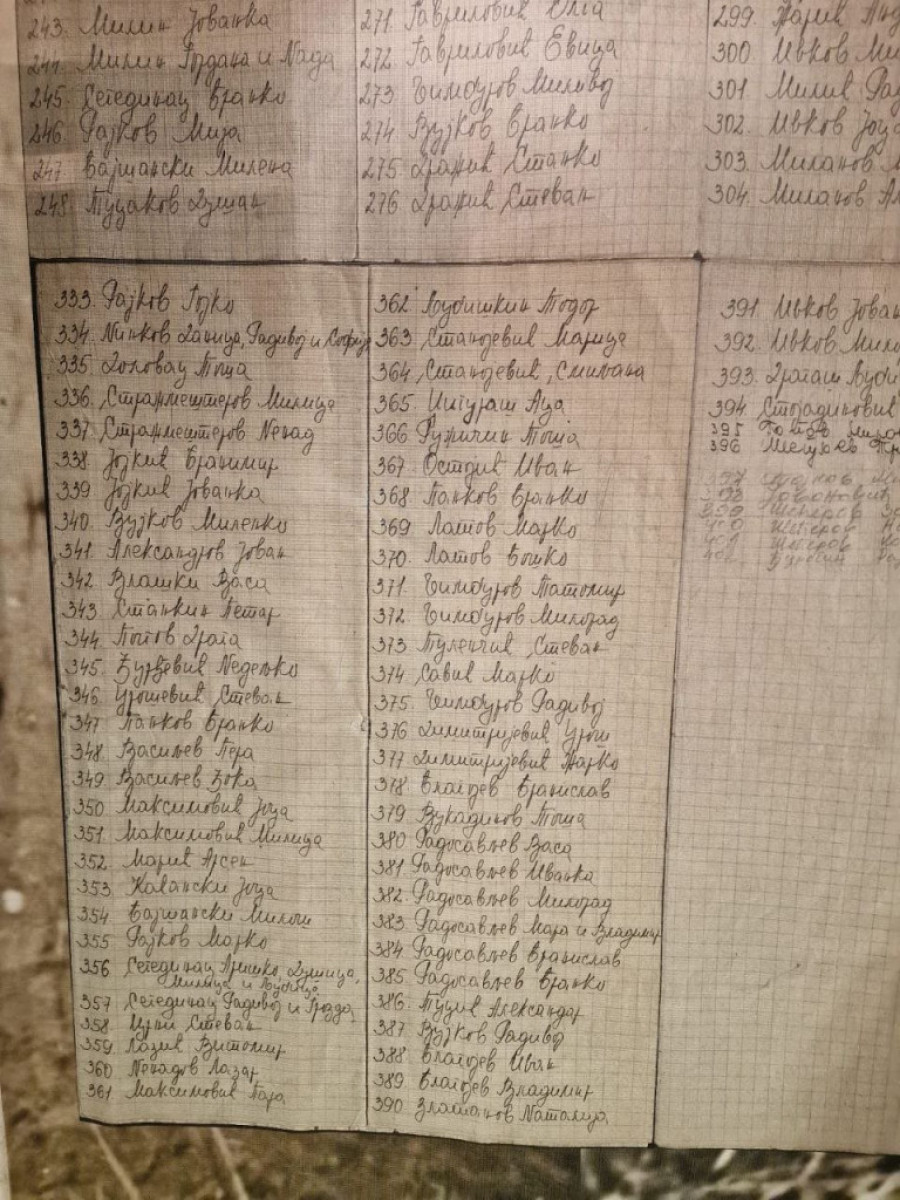 243. Милин Јованка
244. Милин Гордана и Nада
245. Сегединац Бранко
246 Рајков Мија
247 Бајшански Милена
248. Пуцаков Душан
271. Гавриловић Олга
272. Гавриловић Евица
273 Чимбуров Миливој
274 Вујков Бранко
275. Дракић Станко
276 Дракић Стеван
299.
300 Ивков
301 Милић
302. Ивков Јоца
303. Миланов
304. Миланов
333. Рајков Гојко
334. Nинков Даница, Радивој и Софија
335 Доловац Тоша
336. Стражмештеров Милица
337. Стражмештеров Nенад
338. Јојкић Бранимир
339 Јојкић Јованка
340. Вујков Миленко
341. Александров Јован
342. Влашки Васа
343. Станкић Петар
344 Попов Драга
345. Ђурђевић Nедељко
346. Урошевић Стеван
347 Панков Бранко
348. Васиљев Пера
349. Васиљев Ђока
350 Максимовић Јоца
351. Максимовић Милица
352. Марић Арсен
353. Каћански Јоца
354. Бајшански Милош
355 Рајков Марко
356 Сегединац Аришко, Душица,
Милица и Љубица
357 Сегединац Радивој и Грозда
358 Црни Стеван
359 Лазић Витомир
360 Nенадов Лазар
361 Максимовић Пара
362 Љубишкић Тодор
363 Станојевић Марица
364 Станојевић Смиљана
365. Аца
366 Ружичић Тоша
367. Остојић Иван
368 Панков Бранко
369 Латов Марко
370. Латов Бошко
371. Чимбуров Татомир
372. Чимбуров Милорад
373 Пуленчић Стеван
374 Савић Марко
375. Чимбуров Радивој
376 Димитријевић Урош
377 Димитријевић Жарко
378 Благојев Бранислав
379 Вукадинов Тоша
380 Радосављев Васа
381. Радосављев Иванка
382. Радосављев Милорад
383 Радосављев Мара и Владимир
384 Радосављев Бранислав
385. Радосављев Бранко
386. Пуцић Александар
387 Вујков Радивој
388 Благојев Иван
389 Благојев Владимир
390 Златанов Nаталија
391. Ивков Јован
392. Ивков
393. Драгаш
394 Стојадиновић
395
396